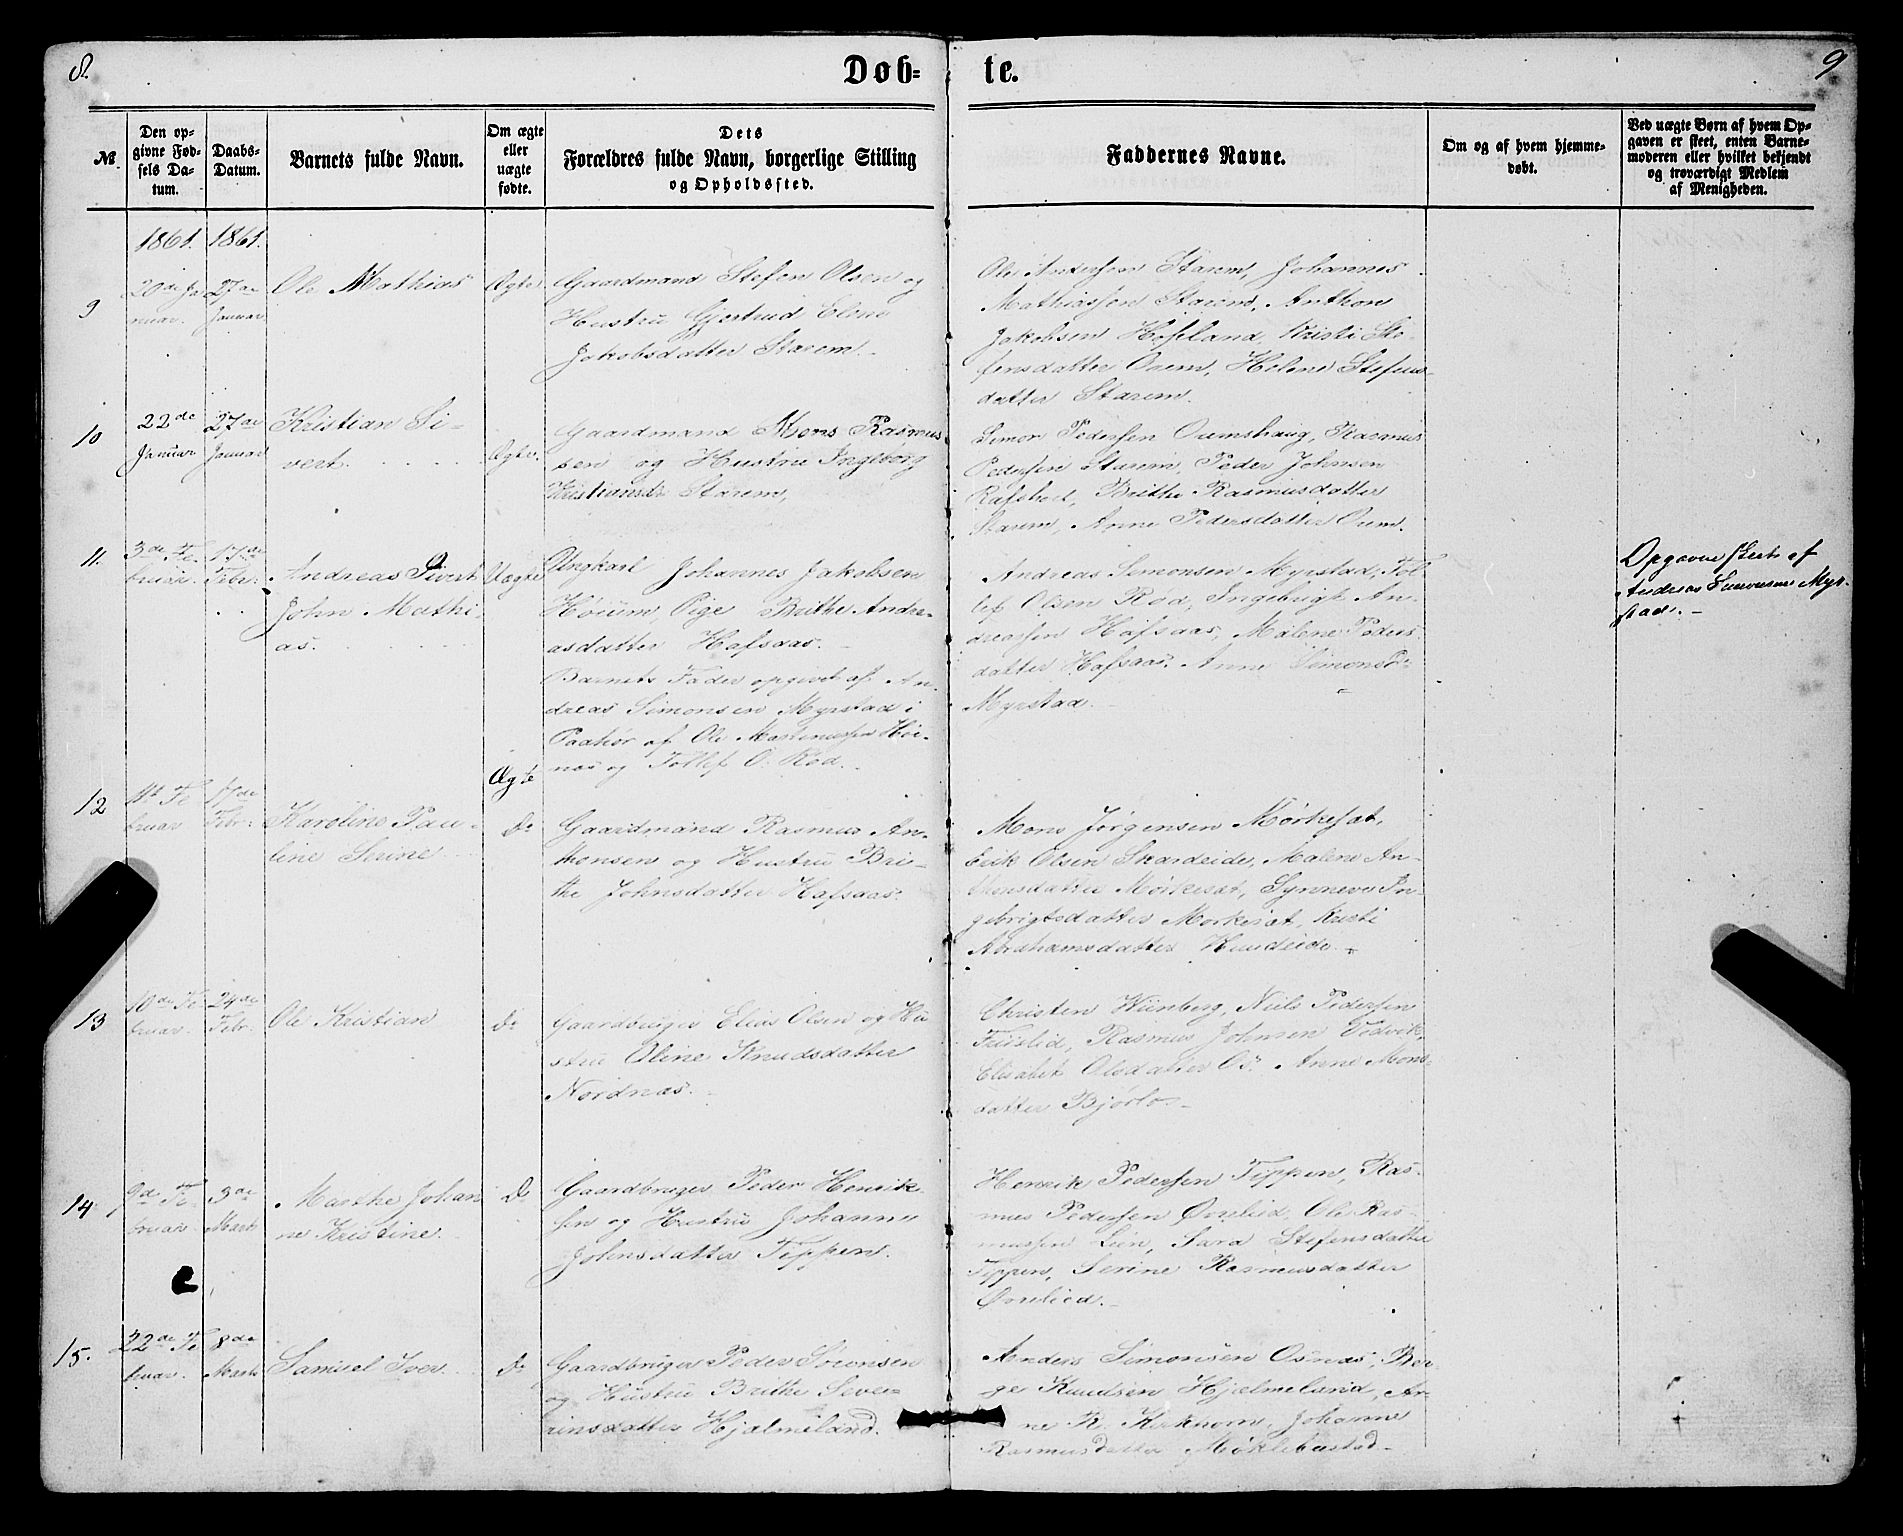 8.
Døb-
te.
9
№
Den op-
givne Fød-
sels Da-
tum.
Daabs-
Datum.
Barnets fulde Navn.
Om ægte
eller
uægte
fødte.
Dets
Forældres fulde Navn, borgerlige Stilling
og Opholdssted.
Faddernes Navne.
Om og af hvem hjemme-
døbt.
Ved uægte Børn af hvem Op-
gaven er skeet, enten Barne-
moderen eller hvilket bekjendt
og troværdigt Medlem
af Menigheden.
1861. 1861.
9
20de Ja
nuar.
27de
Januar
Ole Mathias
Ægte
Gaardmand Stefen Olsen og
Hustru Gjertrud Eline
Jakobsdatter Starem.
Ole Andersen Starem, Johannes
Mathiassen Starem, Anthon
Jakobsen Hofland, Kristi Ste-
fensdatter Orem, Helene Stefens-
datter Starem.
10
22de
Januar
27de
Januar
Kristian Si-
vert
Ægte.
Gaardmand Mons Rasmus
sen og Hustru Ingeborg
Kristiansdr Starem,
Simon Pedersen Oremshaug, Rasmus
Pedersen Starem, Peder Johnsen
Brithe Rasmusdatter
Starem, Anne Pedersdatter Orem.
11.
3de Fe
bruar.
17de
Febr.
Andreas Sivert
John Mathi-
as.
Uægte
Ungkarl Johannes Jakobsen
Hoium, Pige Brithe Andre-
asdatter Hafsaas.
Barnets Fader opgivet af An-
dreas Simonsen Myrstad i
Paahør af Ole Martinussen Hoi-
nes og Tollef O. Rød.
Andreas Simonsen Myrstad, Tol-
lef Olsen Rød, Ingebrigt An-
dreassen Hafsaas, Malene Peders
datter Hafsaas, Anne Simonsdr
Myrstad.
Opgaven skeet af
Andreas Simonsen Myr-
stad.
Ægte
12
11te Fe
bruar
17de
Febr.
Karoline Pau-
line Serine
Do
Gaardmand Rasmus An-
thonsen og Hustru Bri-
the Johnsdatter Hafsaas.
Mons Jørgensen Mørkesæt,
Erik Olsen Skardeide, Malene An-
thonsdatter Mørkesæt, Synneve In-
gebrigtsdatter Mørkesæt, Kristi
Abrahamsdatter Hundeide.
13
10de Fe
bruar.
24de
Febr.
Ole Kristian
Do
Gaardbruger Elias Olsen og Hu
stru Oline Knudsdatter
Nordnæs.
Christen Wiinberg, Niels Pedersen
Furelid, Rasmus Johnsen
Elisabet Olsdatter Os, Anne Mons-
datter Bjørlo
14
9de Fe-
bruar
3de
Marts
Marthe Johan
ne Kristine.
Do
Gaardbruger Peder Henrik
sen og Hustru Johanne
Johnsdatter Tippen.
Henrik Pedersen Tippen, Ras-
mus Pedersen Ørelid, Ole Ras-
mussen Lien, Sara Stefensdatter
Tippen, Serine Rasmusdatter
Ørelied.
15.
22de Fe
bruar.
8de
Marts
Samuel Iver.
Do
Gaardbruger Peder Sørensen
og Hustru Brithe Seve-
rinsdatter Hjelmeland.
Anders Simonsen Osnæs, Bør-
ge Knudsen Hjelmeland, An-
ne R. Kirkhorn, Johanne
Rasmusdatter Myklebustad